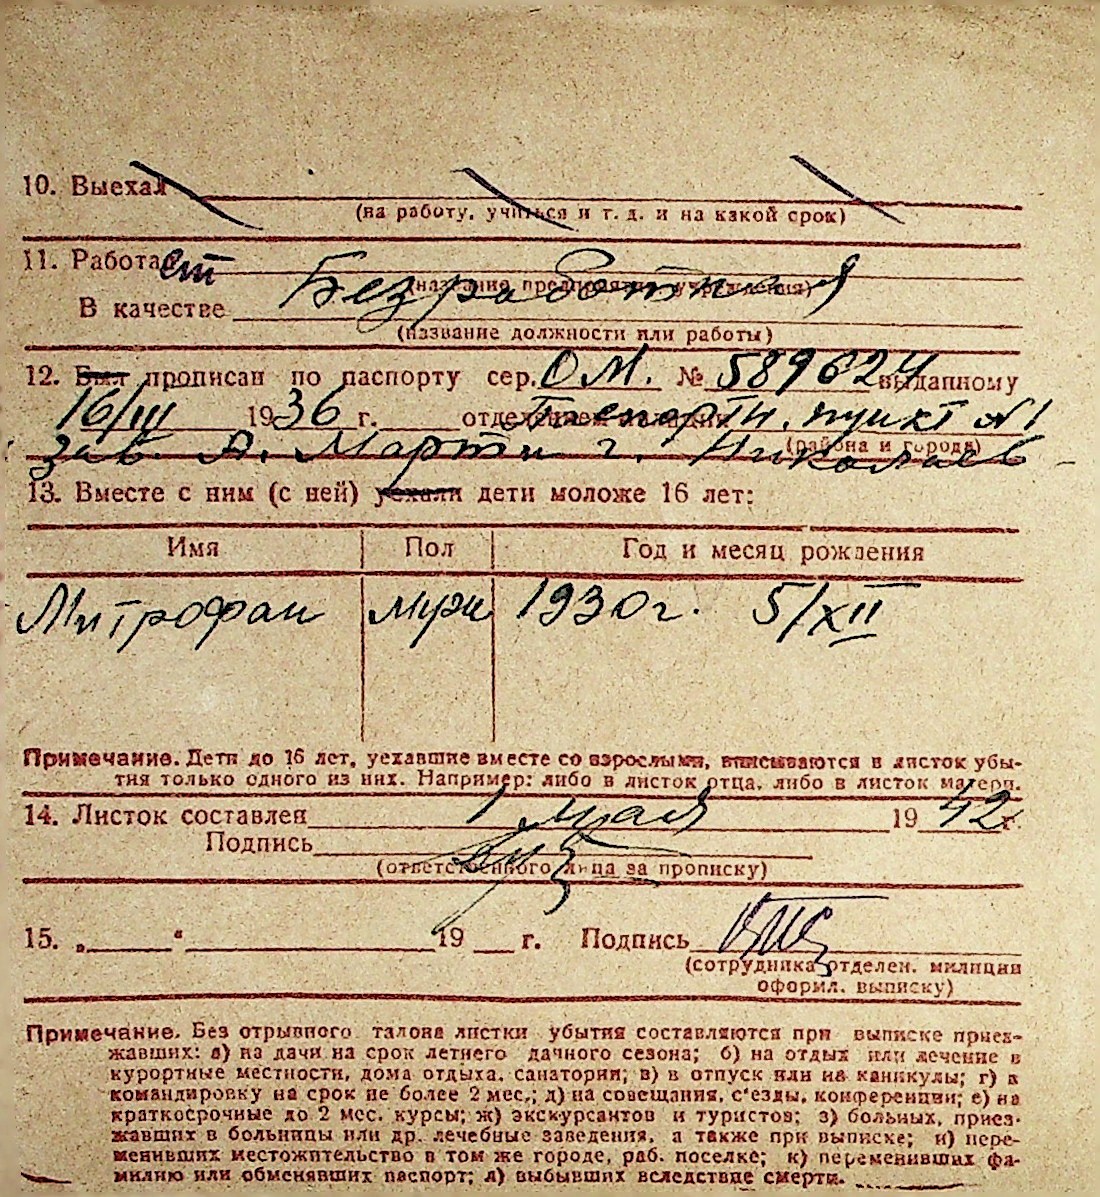 10. Выехал
(на работу, учиться и т. д. и на какой срок)
11. Работает Безработная
(название предприятия, учреждения)
В качестве
(название должности или работы)
12. Был прописан по паспорту сер. О.М. № 589624 выданному
16/III 1936 г. отделением милиции Паспортн. пункт №1
(района и города)
зав. А. Марти г. Николаев
13. Вместе с ним (с ней) уехали дети моложе 16 лет:
Имя Пол Год и месяц рождения
Митрофан муж 1930 г. 5/XII
Примечание. Дети до 16 лет, уехавшие вместе со взрослыми, вписываются в листок убы-
тия только одного из них. Например: либо в листок отца, либо в листок матери.
14. Листок составлен 1 мая 1942 г.
Подпись
(ответственного лица за прописку)
15. „ “ 19 г. Подпись
(сотрудника отделен. милиции
оформл. выписку)
Примечание. Без отрывного талона листки убытия составляются при выписке приез-
жавших: а) на дачи на срок летнего дачного сезона; б) на отдых или лечение в
курортные местности, дома отдыха, санатории; в) в отпуск или на каникулы; г) в
командировку на срок не более 2 мес.; д) на совещания, с'езды, конференции; е) на
краткосрочные до 2 мес. курсы; ж) экскурсантов и туристов; з) больных, приез-
жавших в больницы или др. лечебные заведения, а также при выписке; и) пере-
менивших местожительство в том же городе, раб. поселке; к) переменивших фа-
милию или обменявших паспорт; л) выбывших вследствие смерти.